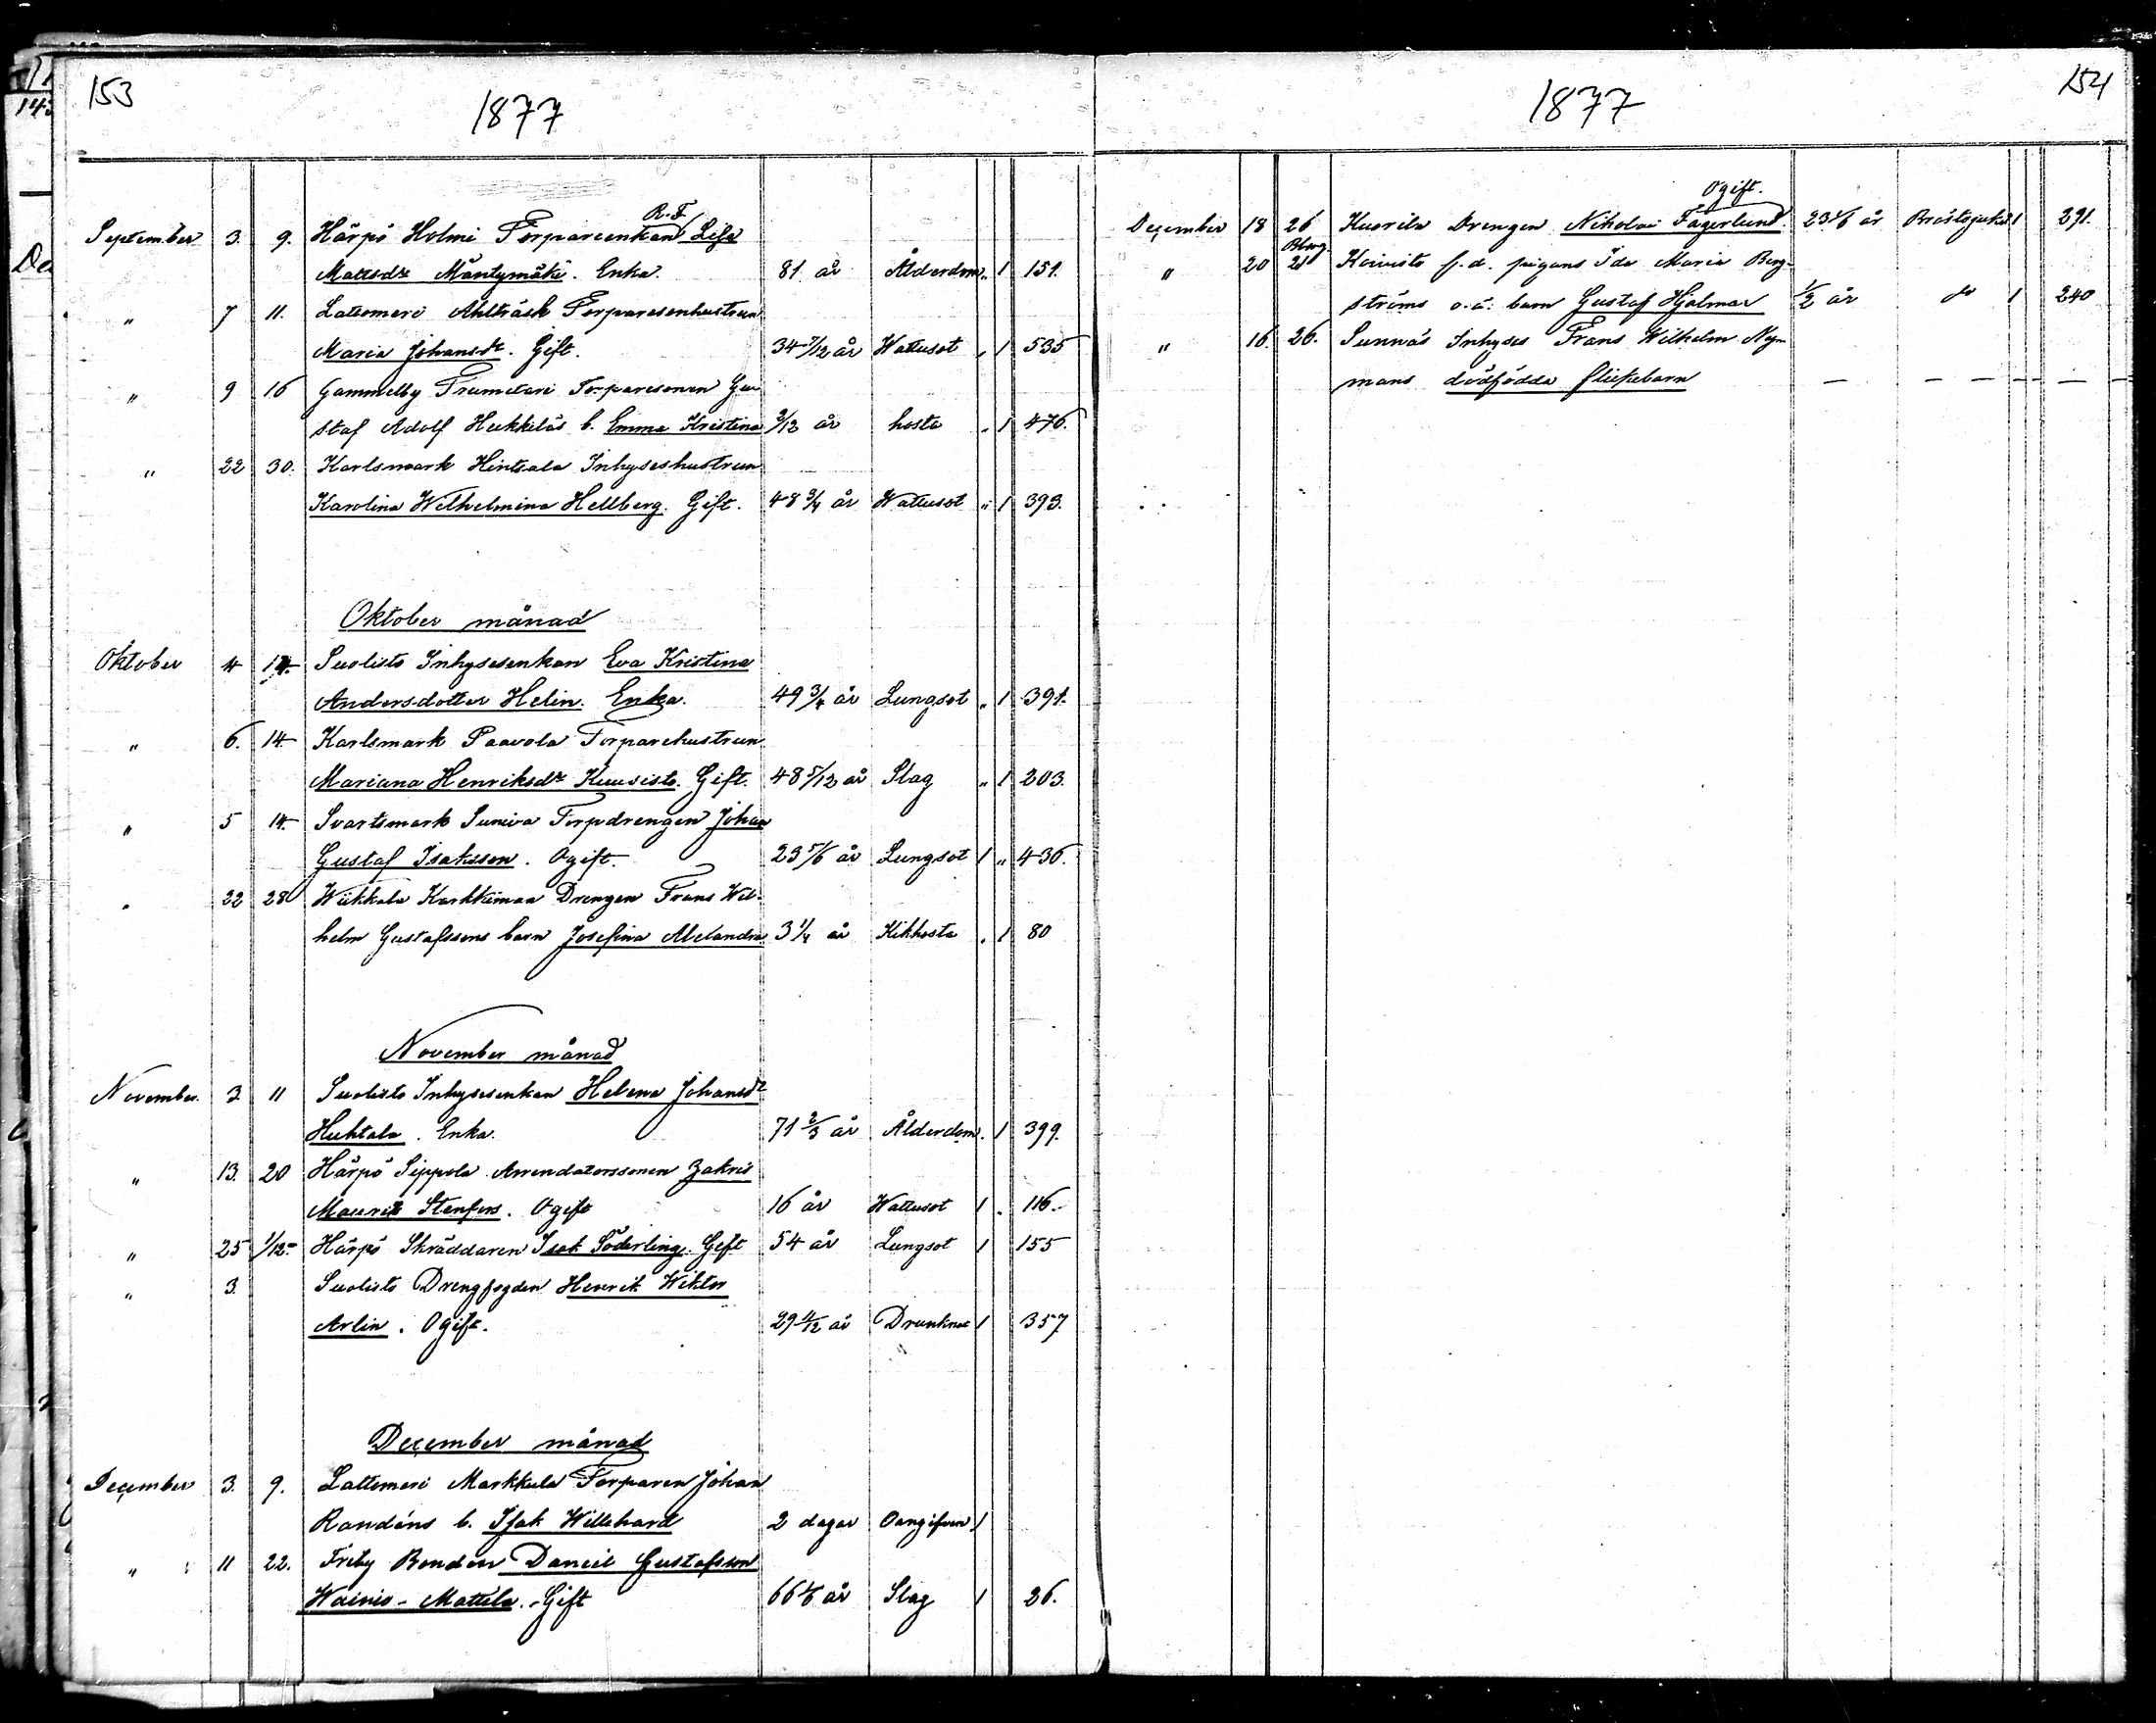 153
1877
R. F.
September 3. 9. Härpö Holmi Torpareenkan Lisa
Mattsdr Mäntymäki. Enka. 81 år Ålderdom „ 1 151.
„ 7 11. Lattomeri Ahlträsk Torparesonhustrun
Maria Johansdr. Gift. 34 7/12 år Wattusot „ 1 535
„ 9 16 Gammelby Trumetari Torparesonen Gu
staf Adolf Heikkiläs b. Emma Kristina 2/12 år hosta „ 1 476.
„ 22 30. Karlsmark Hintsala Inhyseshustrun
Karolina Wilhelmina Hellberg. Gift. 48 3/4 år Wattusot „ 1 393.
Oktober månad
Oktober 4 14 Suolisto Inhysesenkan Eva Kristina
Andersdotter Helin. Enka. 49 3/4 år Lungsot „ 1 391.
„ 6. 14. Karlsmark Paavola Torparehustrun
Mariana Henriksdr Kuusisto. Gift. 48 5/12 år Slag „ 1 203.
„ 5 14. Svartsmark Torpdrengen Johan
Gustaf Isaksson. Ogift. 23 5/6 år Lungsot 1 „ 436.
„ 22 28 Wiikkala Drengen Frans Wil-
helm Gustafssons barn Josefina 3 1/4 år Kikhosta „ 1 80
November månad
November. 3 11 Suolisto Inhysesenkan Helena Johansdr
Huhtala. Enka. 71 2/3 år Ålderdom. 1 399.
„ 13. 20 Härpö Sippola Arrendatorssonen Zakris
Maurits Stenfors. Ogift 16 år Wattusot 1 . 116.
„ 25 1/12. Härpö Skräddaren Isak Söderling. Gift 54 år Lungsot 1 155
„ 3. Suolisto Drengfogden Henrik Wiktor
Arlin. Ogift. 29 år Drunknat 1 357
December månad
December 3. 9. Lattomeri Markkula Torparen Johan
Randéns b. Isak Willehard 2 dagar Oangifven 1
„ 11 22. Friby Bonden Daniel Gustafsson
Wainio-Mattila. - Gift 66 år Slag 1 26.
154
1877
Ogift.
December 18 26 Drengen Nikolai Fagerlund. 23 1/6 år Bröstsjukd 1 291.
„ 20 Koivisto f.d. pigans Ida Maria Berg-
ströms o.ä. barn Gustaf Hjalmar 1/2 år do 1 240
„ 16. 26. Sunnäs Inhyses Frans Wilhelm Ny-
mans dödfödda flickebarn — — — — —